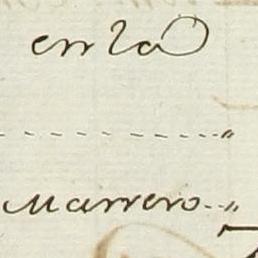 en la
Marrero